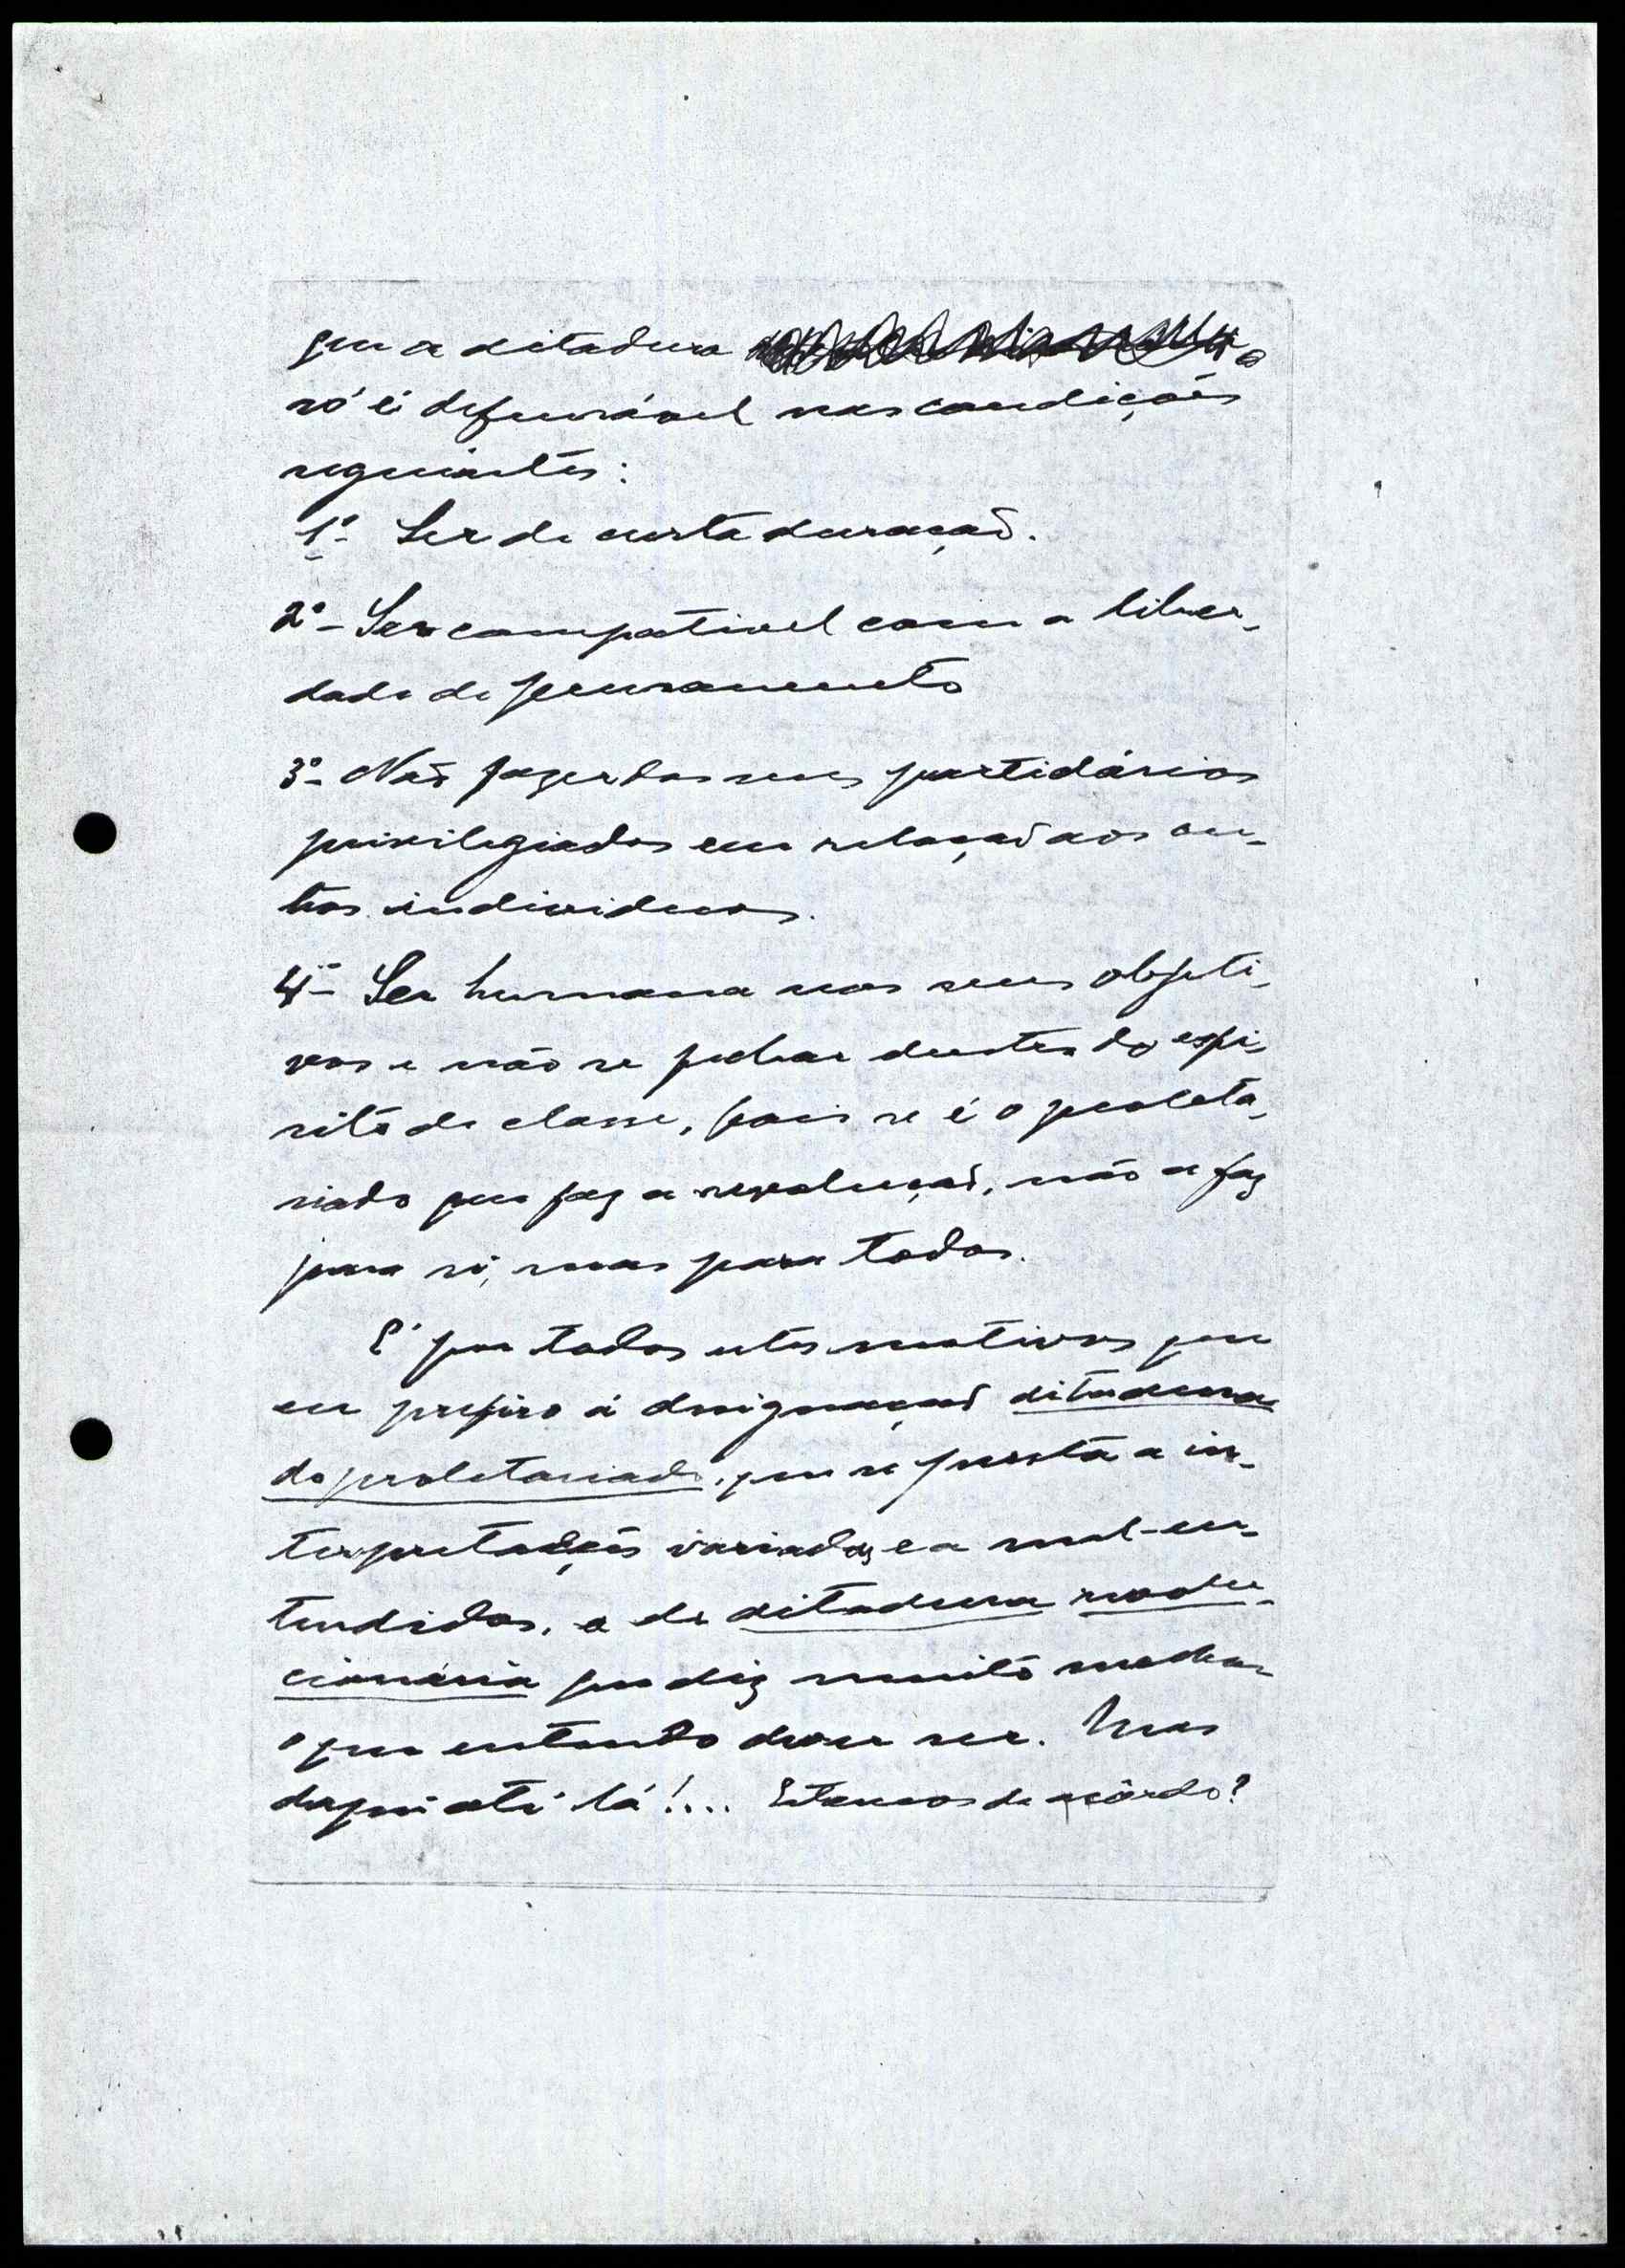 que a ditadura
só é defensável nas condições
seguintes:
1º- Ser de curta duração.
2º- Ser compativel com a liber-
dade de pensamento
3º- Não fazer dos seus partidários
privilegiados em relação aos ou-
tros individuos.
4º- Ser humana nos seus objeti-
vos e não se fechar dentro do espí-
rito de classe, pois se é o proleta-
riado que faz a revolução, não a faz
para si, mas para todos.
É por todos estes motivos que
eu prefiro á designação ditadura
do proletariado, que se presta a in-
terpretações variadas e a mal-en-
tendidos, a de ditadura revolu-
cionária que diz muito melhor
o que entendo deve ser. Mas
daqui até lá!... Estamos de acôrdo?